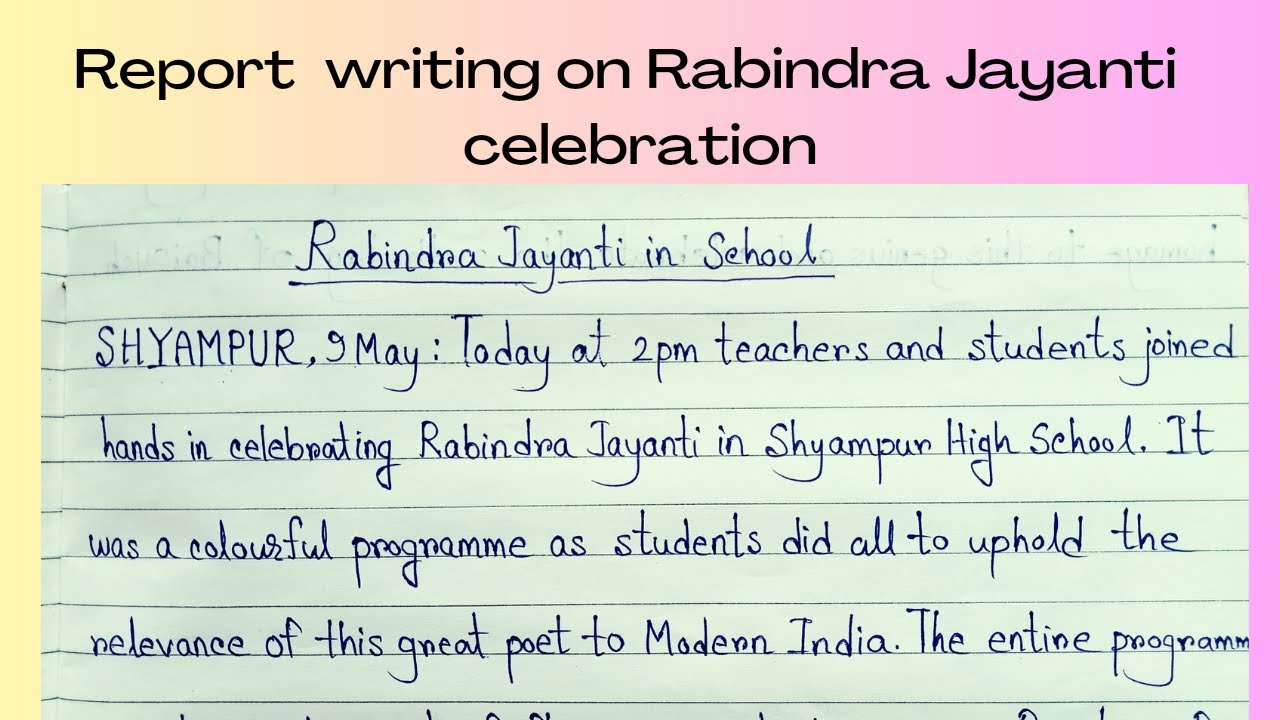 Report writing on Rabindra Jayanti
celebration
Rabindra Jayanti in School
SHYAMPUR, 9 May: Today at 2pm teachers and students joined
hands in celebrating Rabindra Jayanti in Shyampur High School. It
was a colourful programme as students did all to uphold the
relevance of this great poet to Modern India. The entire programm